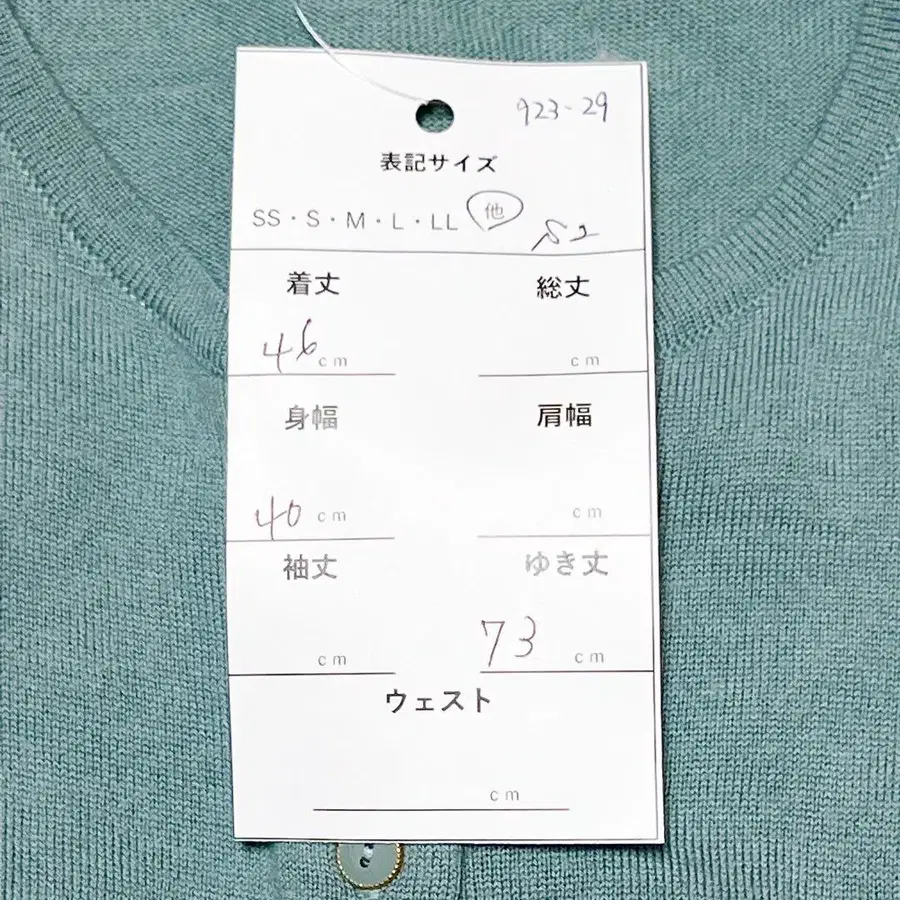 923-29
表記サイズ
SS・S・M・L・LL 他
着丈 総丈
46cm cm
身幅 肩幅
40cm cm
袖丈 ゆき丈
cm 73cm
ウェスト
cm